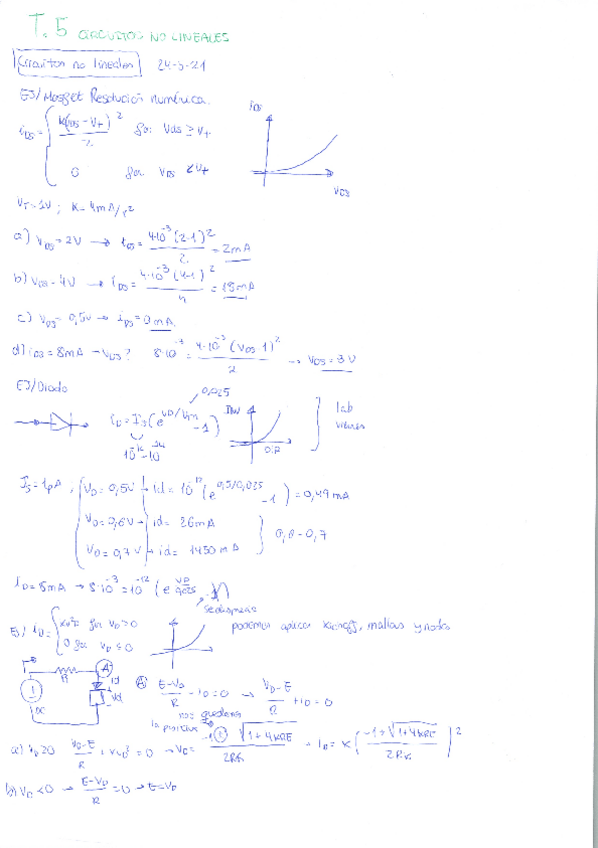 T.5 CIRCUITOS NO LINEALES
Circuitos no lineales 24-5-21
EJ/Mosfet Resolución numérica.
i_DS = { K(V_GS - V_T)^2 / 2 for V_GS ≥ V_T
i_DS
0 for V_GS < V_T
V_GS
V_T = 1V ; K = 4mA/V^2
a) V_GS = 2V → i_DS = 4·10^-3 (2-1)^2 / 2 = 2mA
b) V_GS = 4V → i_DS = 4·10^-3 (4-1)^2 / 2 = 18mA
c) V_GS = 0,5V → i_DS = 0mA.
d) i_DS = 8mA → V_GS? 8·10^-3 = 4·10^-3 (V_GS-1)^2 / 2 → V_GS = 3V
EJ/Diodo
0,025
i_D = I_S (e^{V_D/V_T} - 1)
lab
10^-12 - 10^-14
I_S = 1pA, { V_D = 0,5V → id = 10^-12 (e^{0,5/0,025} - 1) = 0,49mA
V_D = 0,6V → id = 26mA
0,6-0,7
V_D = 0,7V → id = 1450mA
i_D = 8mA → 8·10^-3 = 10^-12 (e^{V_D/0,025} - 1)
se desprecia
EJ/ i_D = { K V_D^2 for V_D ≥ 0
0 for V_D ≤ 0
podemos aplicar Kirchoff, mallas y nodos
R
A
id
Vd
DC
A (E-V_D)/R - i_D = 0 → (V_D-E)/R + i_D = 0
nos quedamos
la positiva
a) V_D ≥ 0 (V_D-E)/R + K V_D^2 = 0 → V_D = (-1 + √(1+4KRE)) / 2RK → i_D = K ( (-1+√(1+4KRE)) / 2RK )^2
b) V_D < 0 → (E-V_D)/R = 0 → E = V_D